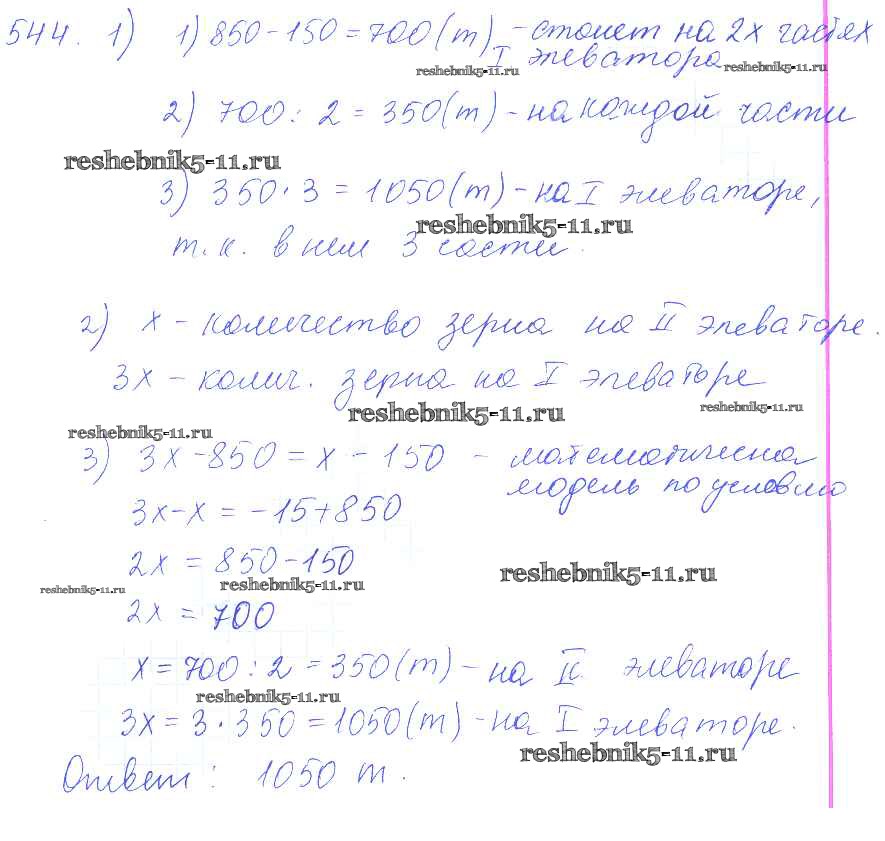 544. 1) 1) 850 - 150 = 700 (т) - стоит на 2х частях
I элеватора
reshebnik5-11.ru reshebnik5-11.ru
2) 700 : 2 = 350 (т) - на каждой части
reshebnik5-11.ru
3) 350 · 3 = 1050 (т) - на I элеваторе,
reshebnik5-11.ru
т.к. в нем 3 части.
2) x - количество зерна на II элеваторе.
3x - колич. зерна на I элеваторе
reshebnik5-11.ru reshebnik5-11.ru
reshebnik5-11.ru
3) 3x - 850 = x - 150 - математическая
модель по условию
3x - x = -15 + 850
2x = 850 - 150
reshebnik5-11.ru reshebnik5-11.ru reshebnik5-11.ru
2x = 700
x = 700 : 2 = 350 (т) - на II элеваторе
reshebnik5-11.ru
3x = 3 · 350 = 1050 (т) - на I элеваторе.
reshebnik5-11.ru
Ответ: 1050 т.